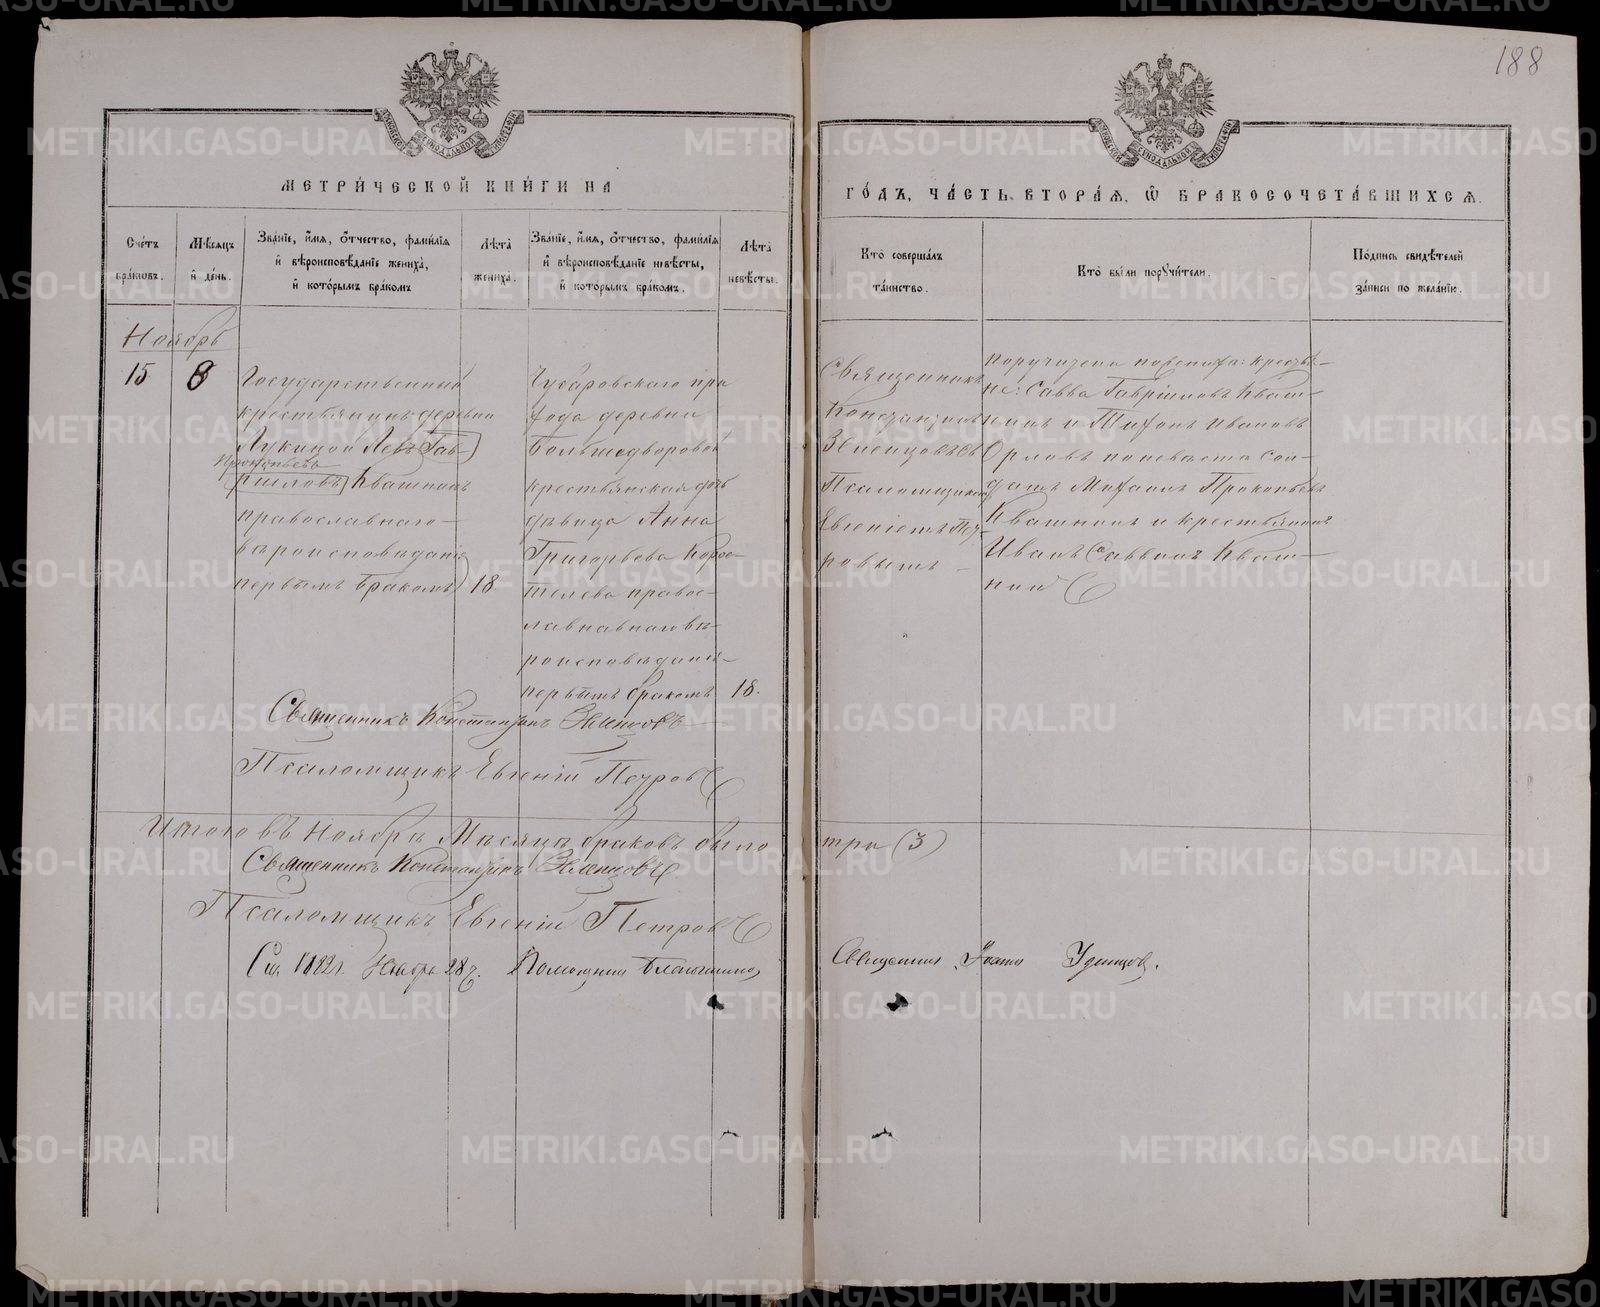 188
МОСКОВСКОЙ СѴНОДАЛЬНОЙ ТИПОГРАФІИ
МОСКОВСКОЙ СѴНОДАЛЬНОЙ ТИПОГРАФІИ
МЕТРИ́ЧЕСКОЙ КНИ́ГИ НА
ГО́ДЪ, ЧА́СТЬ ВТОРА́Я, Ѡ҆ БРАКОСОЧЕТА́ВШИХСЯ.
Сче́тъ бра́ковъ.
Мѣ́сяцъ и҆ де́нь.
Зва́нїе, и҆́мя, ѻ҆́тчество, фами́лїя и҆ вѣроисповѣ́данїе жениха̀, и҆ кото́рымъ бра́комъ
Лѣ́та жениха̀.
Зва́нїе, и҆́мя, ѻ҆́тчество, фами́лїя и҆ вѣроисповѣ́данїе невѣ́сты, и҆ кото́рымъ бра́комъ.
Лѣ́та невѣ́сты.
Кто̀ соверша́лъ та́инство.
Кто̀ бы́ли порꙋчи́тели.
По́дпись свидѣ́телей за́писи по жела́нїю.
Ноябрь
15
8
Государственный
крестьянинъ деревни
Лукиной Левъ Гав-
Прокопьевъ
риловъ Квашнинъ
православнаго
вѣроисповѣданія
первымъ бракомъ
18
Чубаровскаго при
хода деревни
Большедворовой
крестьянская дочь
дѣвица Анна
Григорьева Коро-
телева правос-
лавнавнаго вѣ-
роисповѣданія
первымъ бракомъ
18.
Священникъ
Константинъ
Земленцовъ съ
Псаломщикомъ
Евгеніемъ Пет-
ровымъ
Поручители по женихѣ: кресть-
не: Савва Гавріиловъ Кваш-
нинъ и Тифонъ Ивановъ
Орловъ по невѣстѣ сол-
датъ Михаилъ Прокопьевъ
Квашнинъ и крестьянинъ
Иванъ Саввинъ Кваш-
нин
Священникъ Константинъ
Псаломщикъ Евгеній Петровъ
Итого въ Ноябрѣ Мѣсяцѣ браковъ было три (3)
Священникъ Константинъ
Псаломщикъ Евгеній Петровъ
1882 г. Ноября 28 ч. Помощник Благочиннаго Священник Іоаннъ Удинцов.